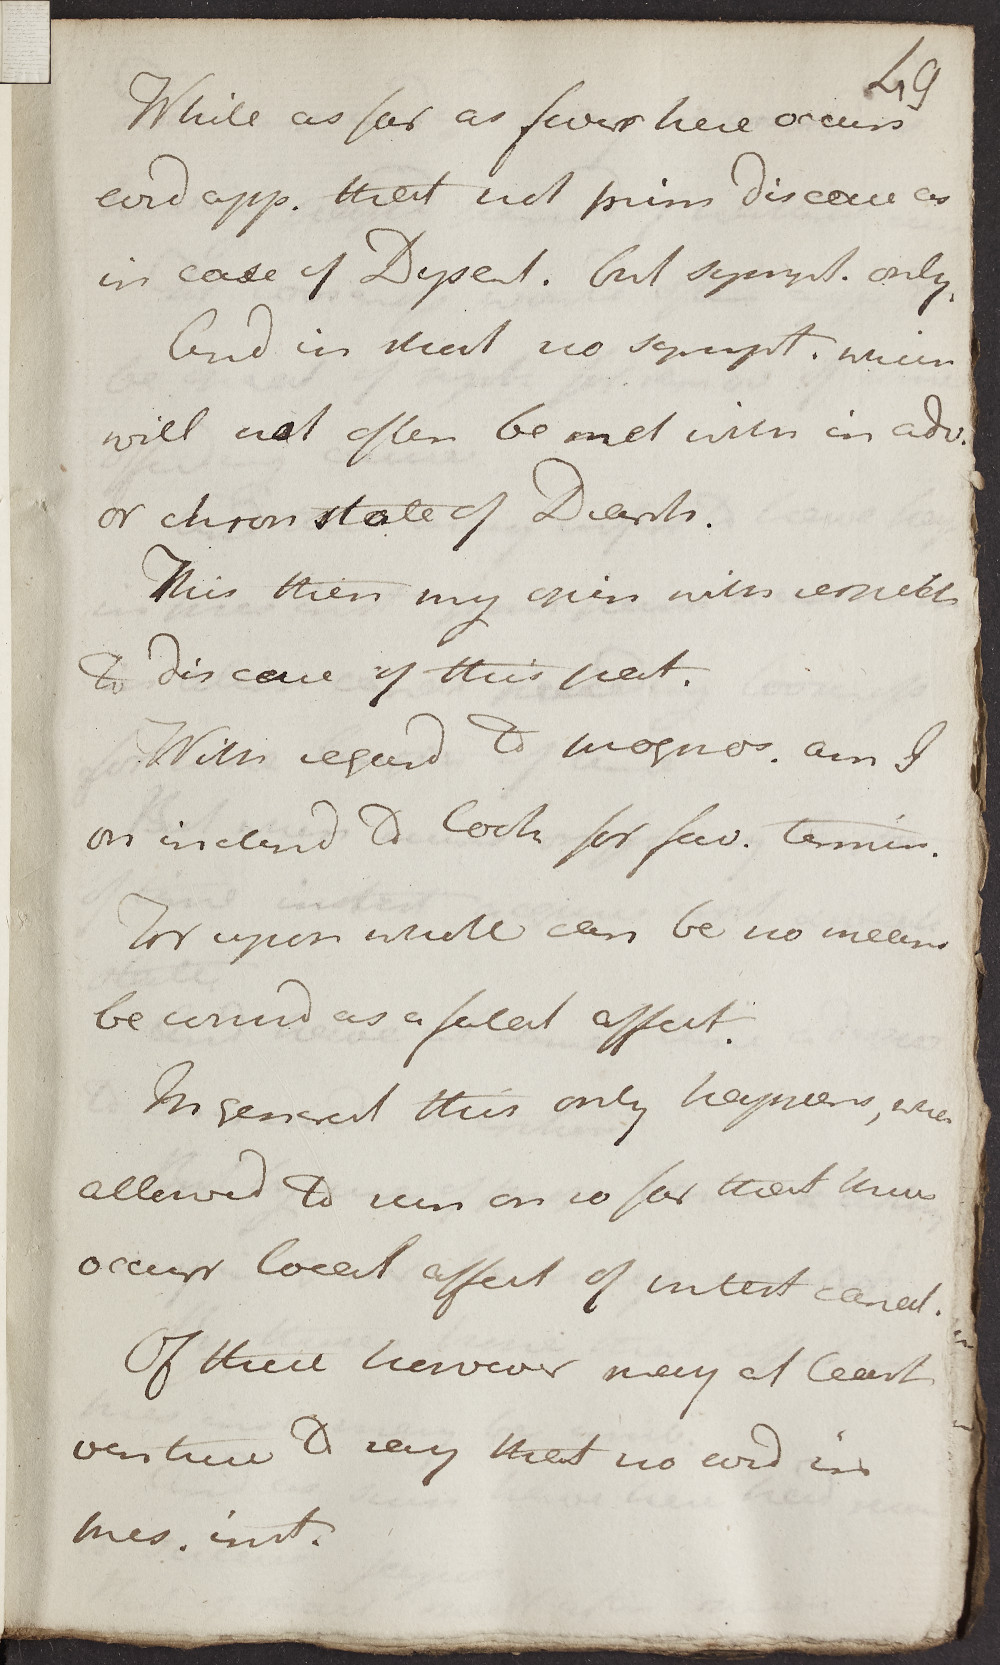 49
While as far as fever here occurs
evid app. that not prim disease as
in case of Dysent. but sympt. only.
And is that no sympt. which
will not often be met with in adv.
or chron state of Diarrh.
This then my opin with respect
to disease of this pat.
With regard to prognos. am I
on inclend to look for fav. termin.
For upon whole can be no means
be consid as a fatal affect.
In general this only happens, when
allowed to run on so far that have
occurr local affect of intest canal.
Of these however may at least
venture to say that no evid in
pres. inst.